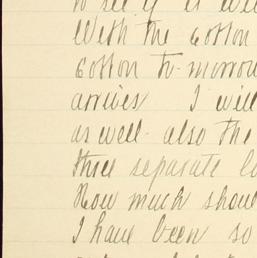 to see if it will
With the cotton
cotton to-morrow
arrives I will
as well- also the
three separate
How much shou
I have been so